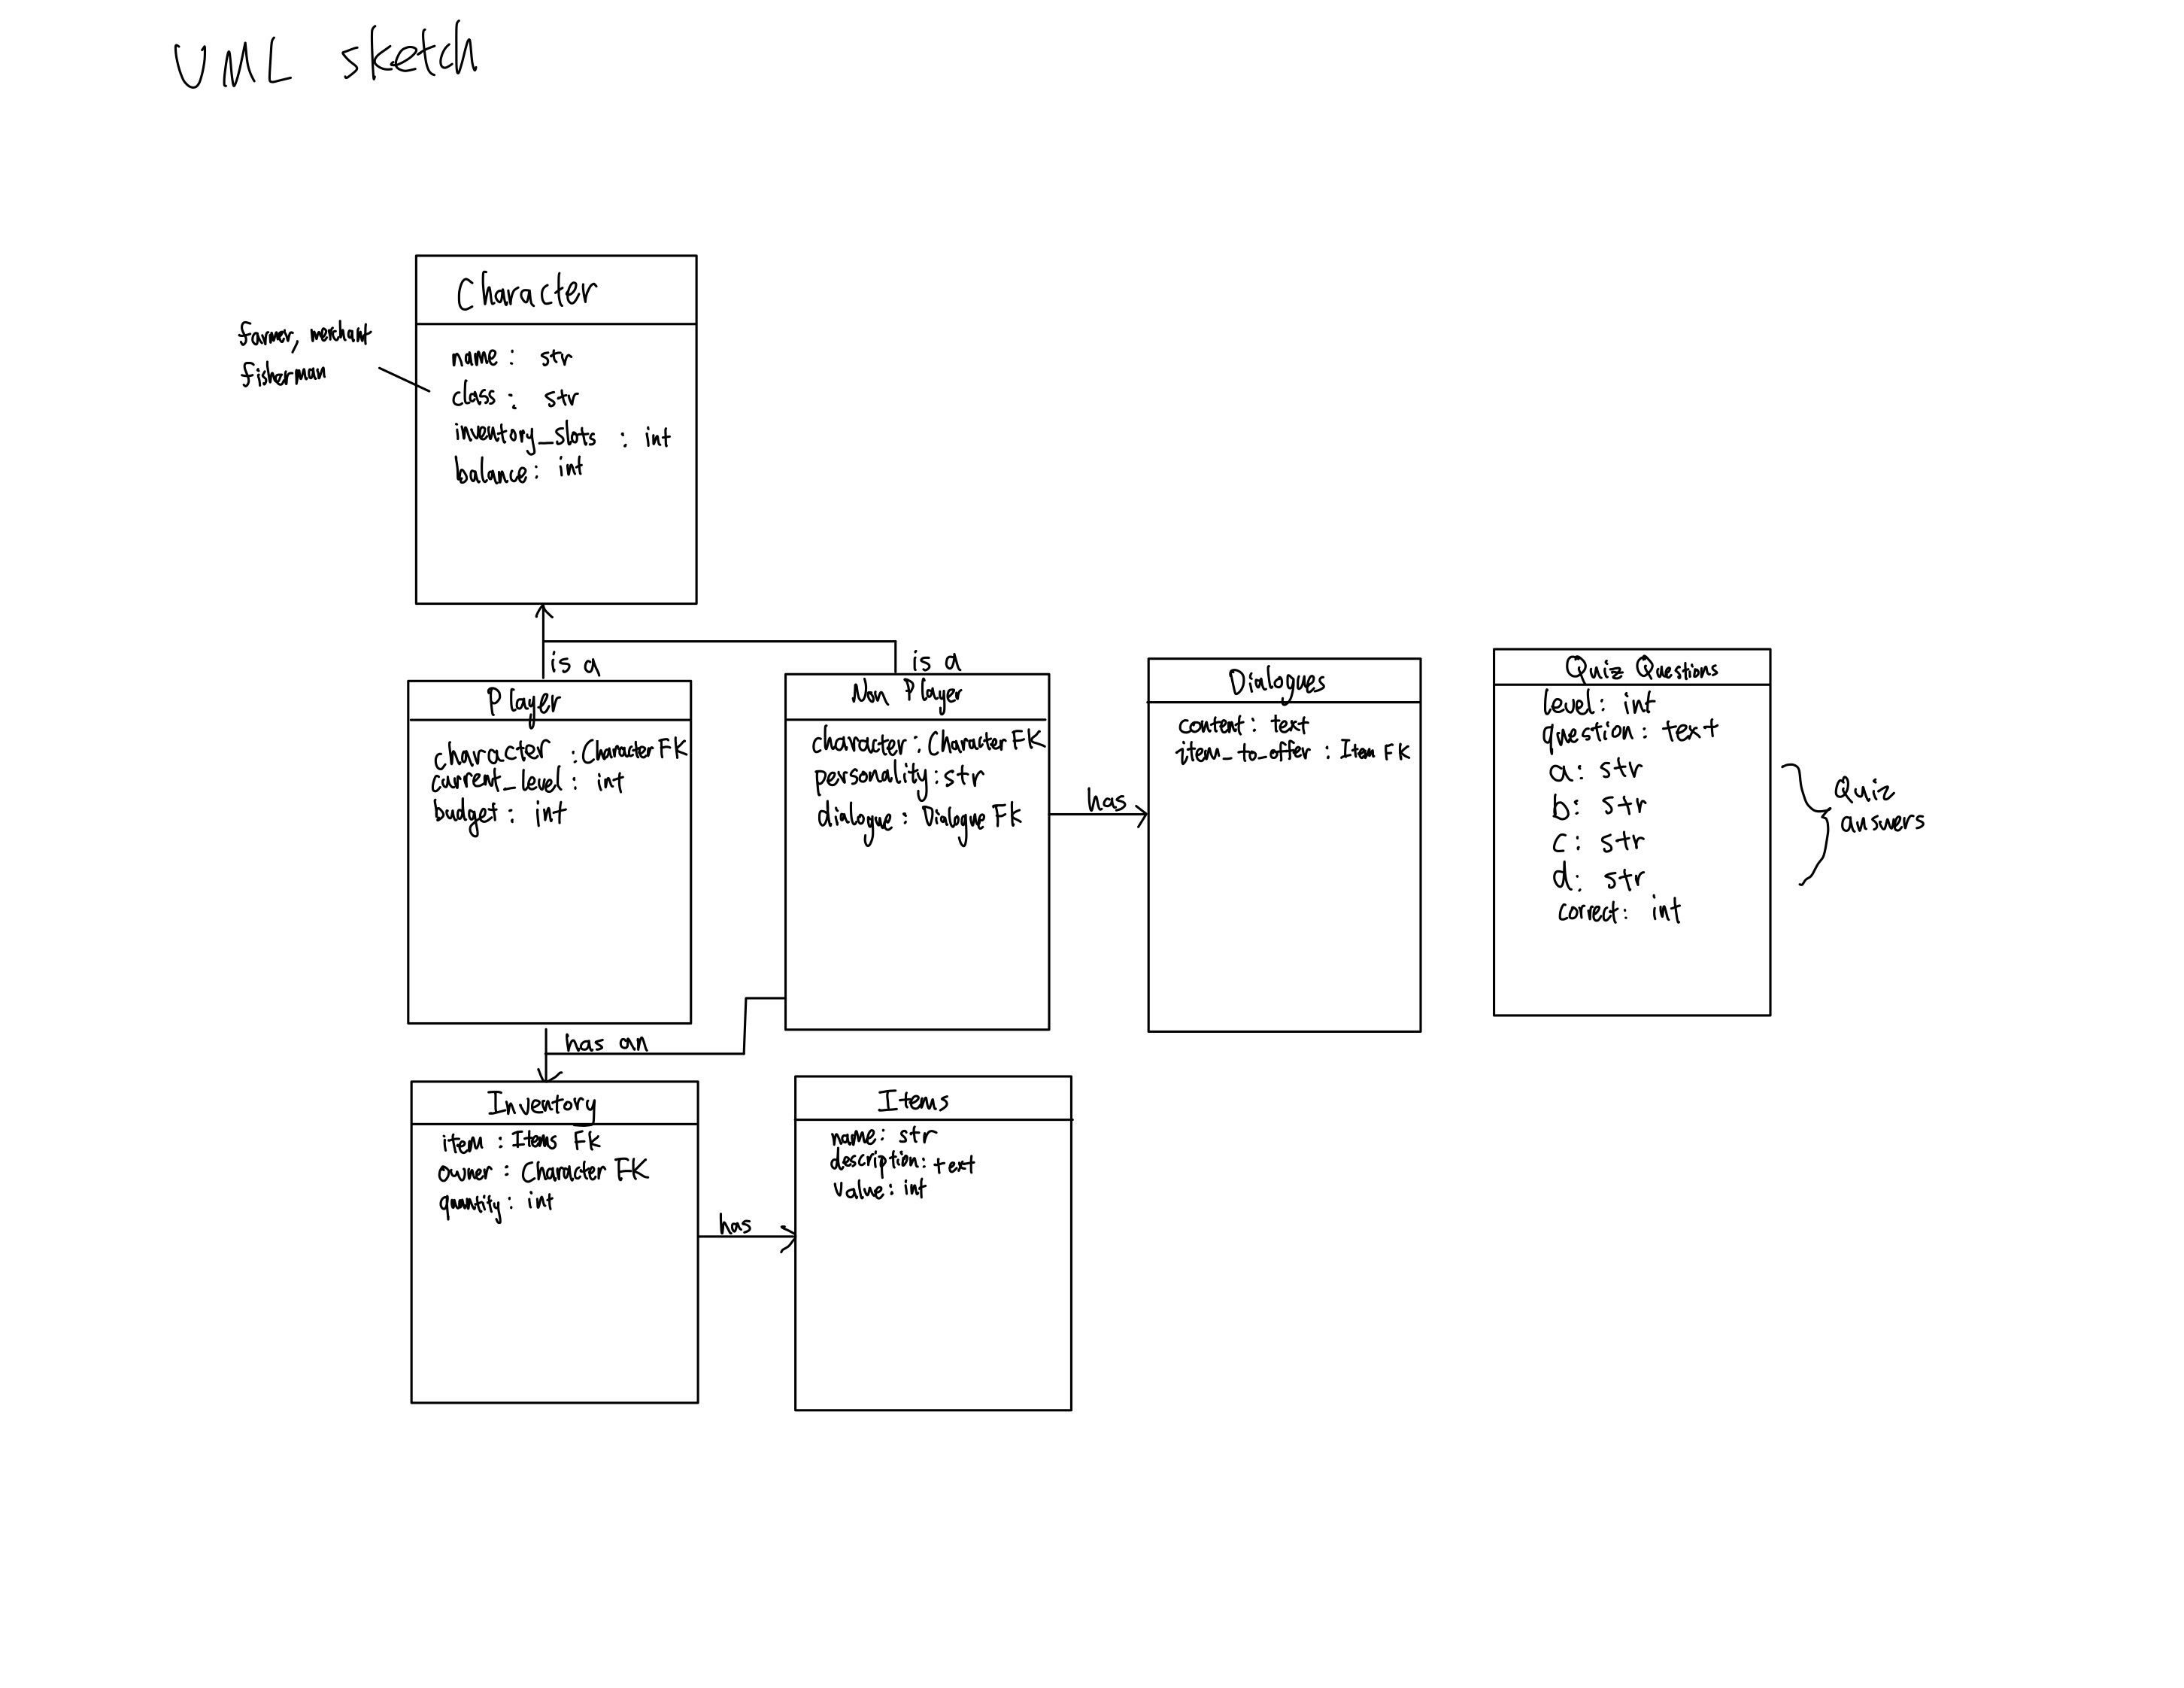 UML sketch
Character
farmer, merchant
fisherman
name : str
class : str
inventory_slots : int
balance : int
is a
is a
Player
character : Character FK
current_level : int
budget : int
Non Player
character : Character FK
personality : str
dialogue : Dialogue FK
has
Dialogues
content : text
item_to_offer : Item FK
Quiz Questions
level : int
question : text
a : str
b : str
c : str
d : str
correct : int
Quiz
answers
has an
Inventory
item : Items FK
owner : Character FK
quantity : int
has
Items
name : str
description : text
value : int